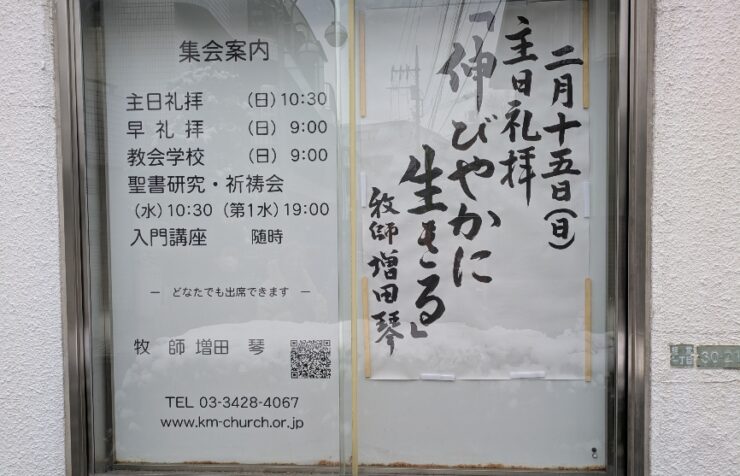 集会案内
主日礼拝 (日) 10:30
早礼拝 (日) 9:00
教会学校 (日) 9:00
聖書研究・祈祷会
(水) 10:30 (第1水) 19:00
入門講座 随時
― どなたでも出席できます ―
牧師 増田 琴
TEL 03-3428-4067
www.km-church.or.jp
二月十五日(日)
主日礼拝
「伸びやかに
生きる」
牧師 増田琴